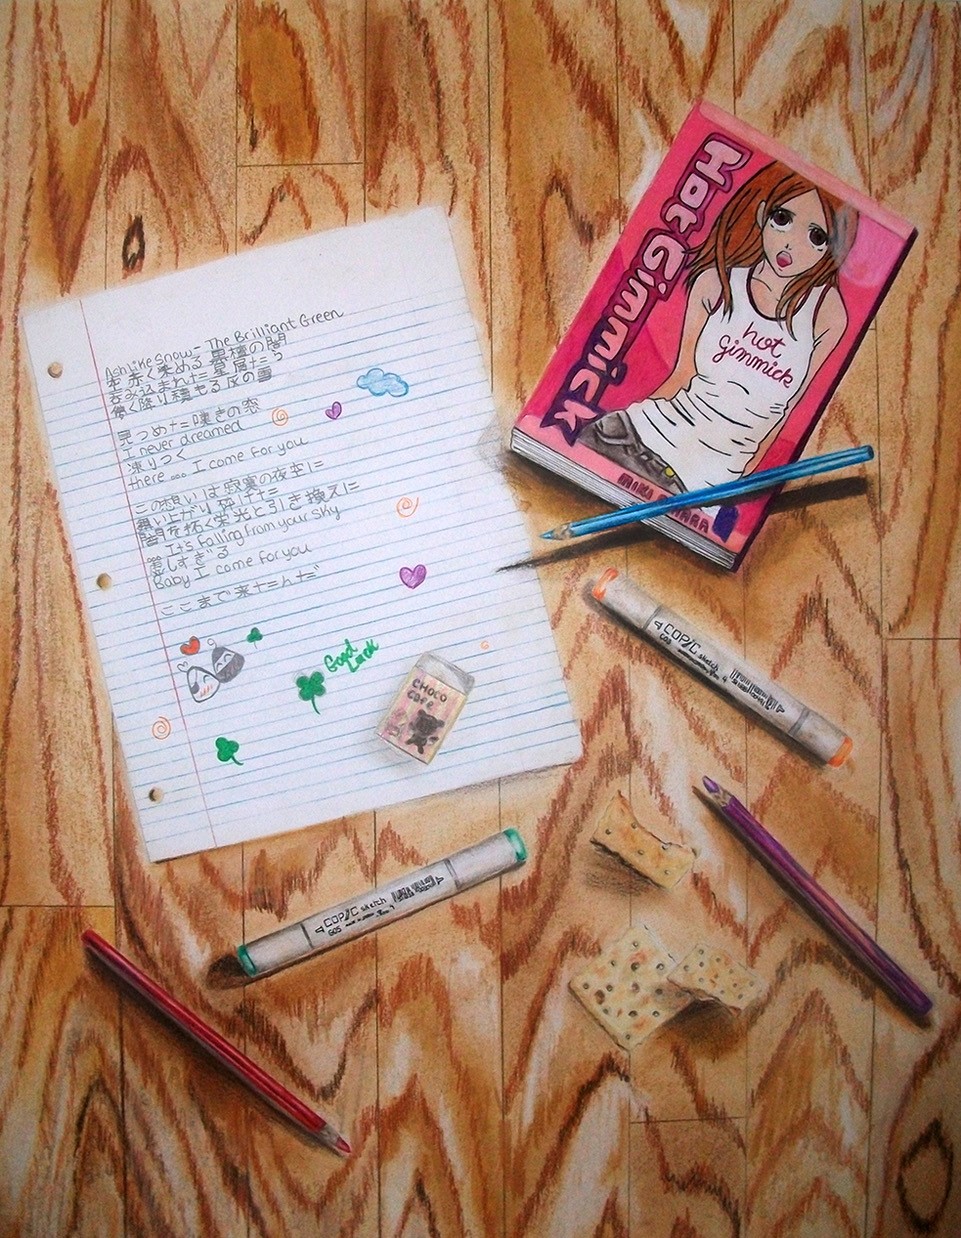 Ash Like Snow - The Brilliant Green
空赤く染める 黒檀の闇
呑み込まれた 星屑たち
儚く降り積もる 灰の雪
見つめた 嘆きの恋
I never dreamed
凍りつく
there ... I come for you
この想いは 寂寞の夜空に
舞い上がり 砕けた
闇を拓く栄光と引き換えに
It's falling from your sky
悲しすぎる
Baby I come for you
ここまで来たんだ
Good
Luck
CHOCO
CAFE
Hot Gimmick
hot
Gimmick
MIKI AIHARA
COPIC sketch
COPIC sketch
G05